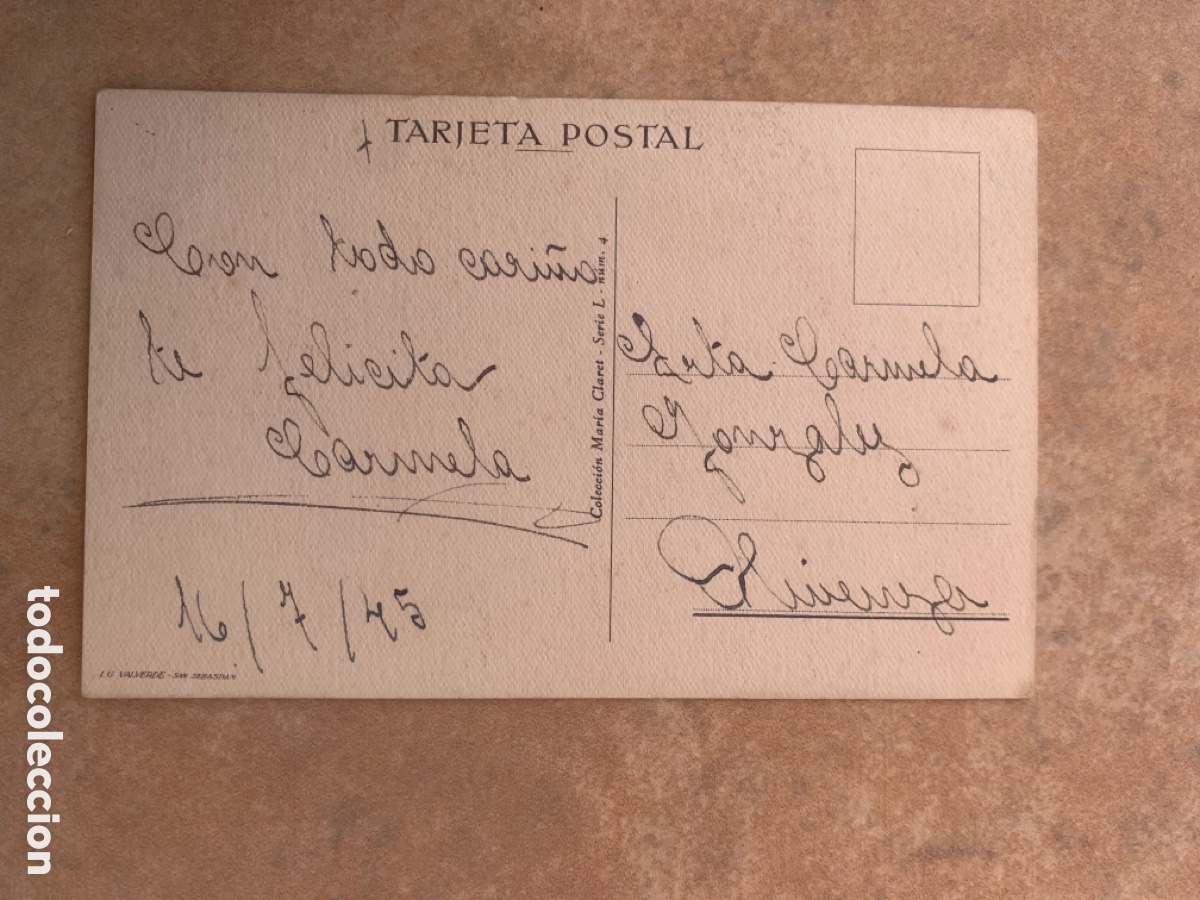 TARJETA POSTAL
Con todo cariño
te felicita
Carmela
16/7/45
J.G VALVERDE - SAN SEBASTIAN
Colección María Claret - Serie L - núm. 4
Srta. Carmela
Gonzalez
todocoleccion